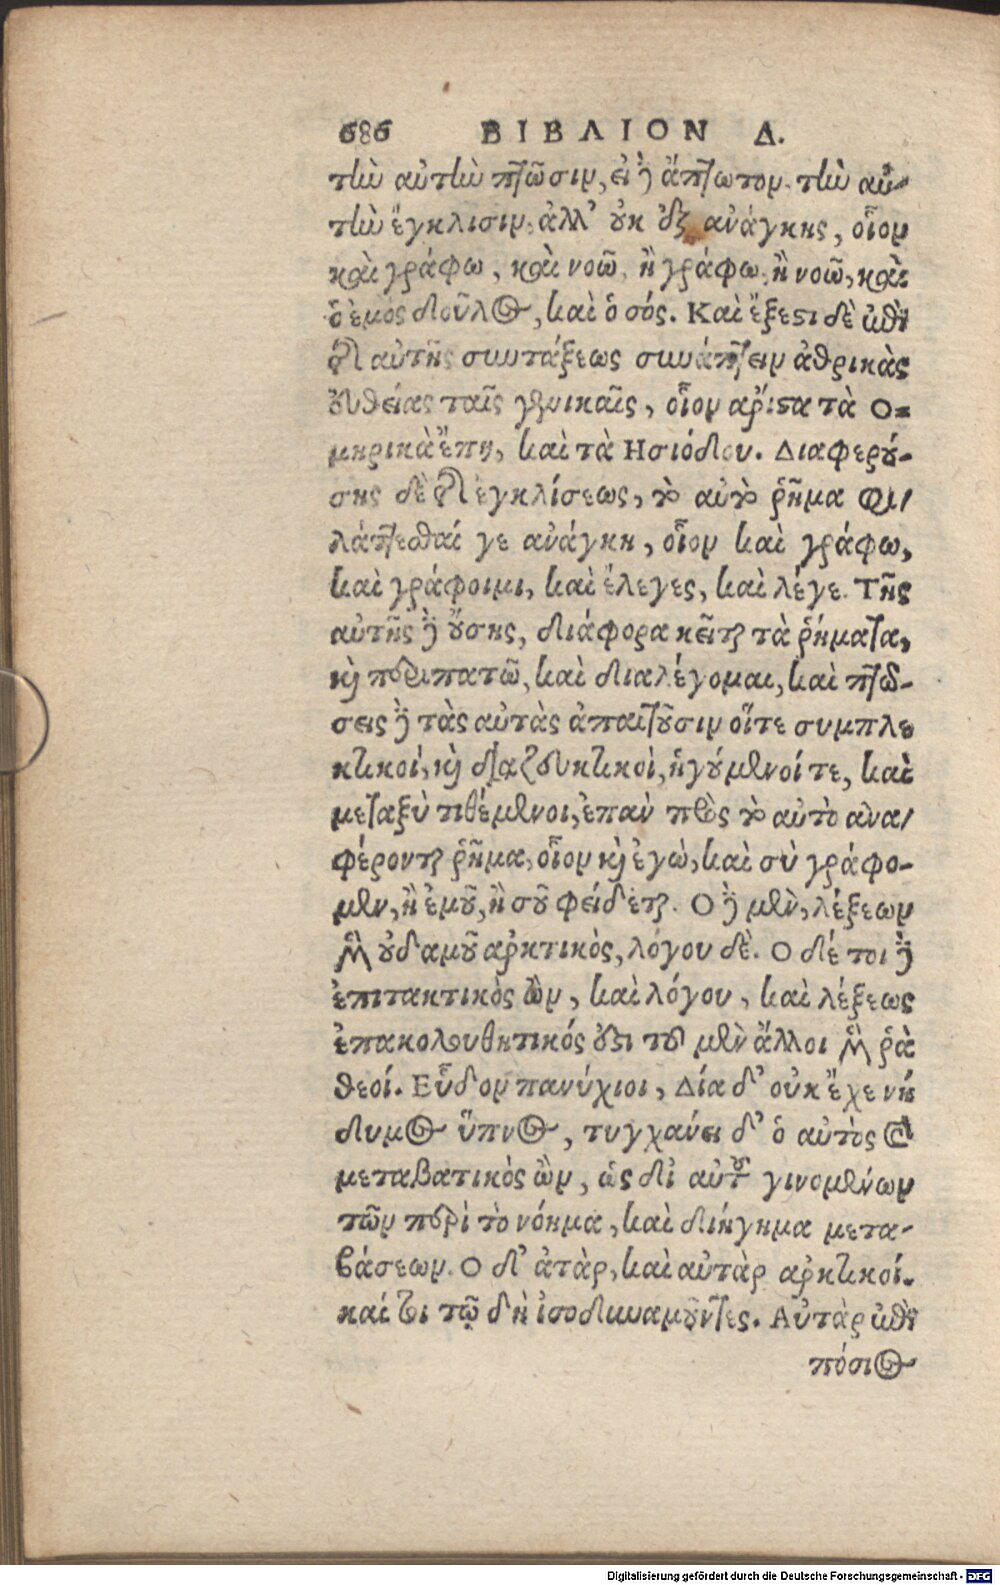 686 ΒΙΒΛΙΟΝ Δ.
τὴν αὐτὴν πτῶσιν, εἰ δὲ ἄπτωτον. τὴν αὐ-
τὴν ἔγκλισιν, ἀλλ' οὐκ ἐξ ανάγκης, οἷον
καὶ γράφω, καὶ νοῶ, ἢ γράφω, ἢ νοῶ, καὶ
ὁ ἐμὸς δοῦλος, καὶ ὁ σός. Καὶ ἔξεστι δὲ ἐπὶ
τῆς αὐτῆς συντάξεως συνάπτειν ἀθρικὰς
εὐθείας ταῖς γενικαῖς, οἷον αρίστα τὰ Ο-
μηρικὰ ἔπη, καὶ τὰ Ησιόδου. Διαφερού-
σης δὲ τῆς εγκλίσεως, τὸ αὐτὸ ῥῆμα φυ-
λάττεσθαί γε ανάγκη, οἷον καὶ γράφω,
καὶ γράφοιμι, καὶ ἔλεγες, καὶ λέγε. Τῆς
αὐτῆς δὲ οὔσης, διάφορα κεῖται τὰ ῥήματα,
καὶ περιπατῶ, καὶ διαλέγομαι, καὶ πτώ-
σεις δὲ τὰς αὐτὰς ἀπαιτοῦσιν οἵτε συμπλε
κτικοί, καὶ διαζευκτικοὶ, ἡγούμενοί τε, καὶ
μεταξὺ τιθέμενοι, ἐπαν πρὸς τὸ αὐτὸ ανα-
φέρονται ῥῆμα, οἷον καὶ ἐγὼ, καὶ σὺ γράφο-
μεν, ἢ ἐμοῦ, ἢ σοῦ φείδεται. Ο δὲ μὲν, λέξεων
μὲν οὐδαμοῦ αρκτικὸς, λόγου δὲ. Ο δέ τοι δὲ
ἐπιτακτικὸς ὢν, καὶ λόγου, καὶ λέξεως
ἐπακολουθητικός ἐστι τοῦ μὲν ἄλλοι μὲν ῥὰ
θεοί. Εὗδον πανύχιοι, Δία δ' οὐκ ἔχε νή
δυμος ὕπνος, τυγχάνει δ' ὁ αὐτὸς καὶ
μεταβατικὸς ὢν, ὡς δι' αὐτοῦ γινομένων
τῶν περὶ τὸ νόημα, καὶ διήγημα μετα-
βάσεων. Ο δ' ἀτὰρ, καὶ αὐτὰρ αρκτικοί.
καί εἰσι τῷ δὴ ἰσοδυναμοῦντες. Αὐτὰρ ἐπὶ
πόσιος
Digitalisierung gefördert durch die Deutsche Forschungsgemeinschaft - DFG